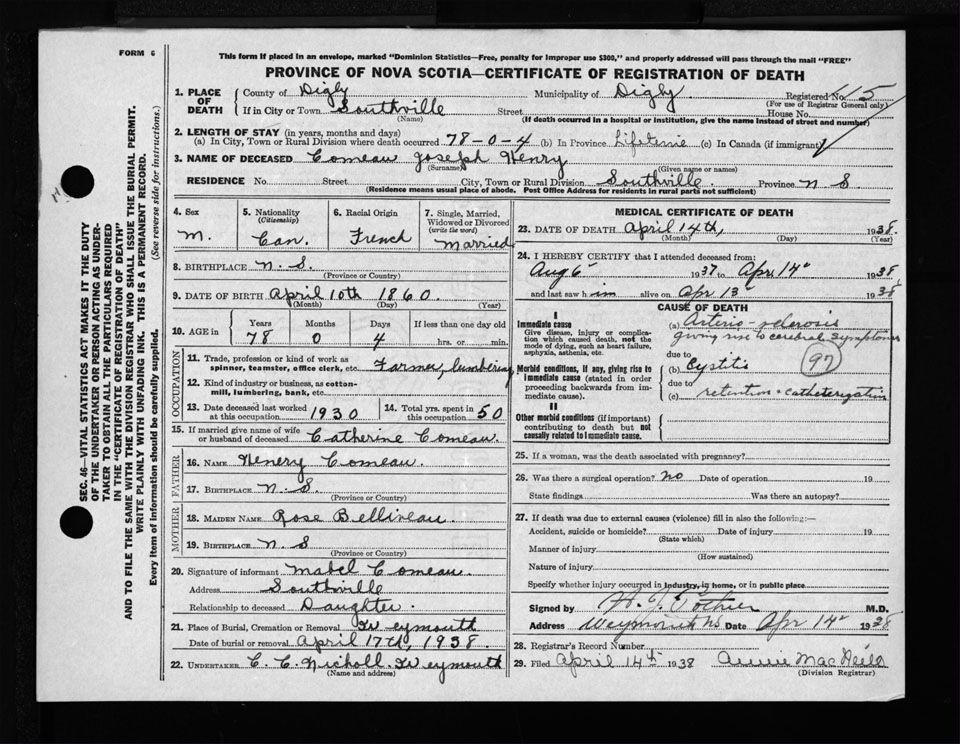 FORM 6
This form if placed in an envelope, marked "Dominion Statistics—Free, penalty for improper use $300," and properly addressed will pass through the mail "FREE"
PROVINCE OF NOVA SCOTIA—CERTIFICATE OF REGISTRATION OF DEATH
SEC. 46—VITAL STATISTICS ACT MAKES IT THE DUTY
OF THE UNDERTAKER OR PERSON ACTING AS UNDER-
TAKER TO OBTAIN ALL THE PARTICULARS REQUIRED
IN THE "CERTIFICATE OF REGISTRATION OF DEATH"
AND TO FILE THE SAME WITH THE DIVISION REGISTRAR WHO SHALL ISSUE THE BURIAL PERMIT.
WRITE PLAINLY WITH UNFADING INK. THIS IS A PERMANENT RECORD.
Every item of information should be carefully supplied. (See reverse side for instructions.)
1. PLACE OF DEATH
County of Digby Municipality of Digby Registered No. 15
(For use of Registrar General only)
If in City or Town Southville Street House No.
(Name) (If death occurred in a hospital or institution, give the name instead of street and number)
2. LENGTH OF STAY (in years, months and days)
(a) In City, Town or Rural Division where death occurred 78-0-4 (b) In Province Lifetime (c) In Canada (if immigrant)
3. NAME OF DECEASED Comeau Joseph Henry
(Surname) (Given name or names)
RESIDENCE No. Street City, Town or Rural Division Southville Province N S
(Residence means usual place of abode. Post Office Address for residents in rural parts not sufficient)
4. Sex M.
5. Nationality (Citizenship) Can.
6. Racial Origin French
7. Single, Married, Widowed or Divorced (write the word) Married
8. BIRTHPLACE N. S.
(Province or Country)
9. DATE OF BIRTH April 10th 1860.
(Month) (Day) (Year)
10. AGE in Years 78 Months 0 Days 4 If less than one day old hrs. or min.
OCCUPATION
11. Trade, profession or kind of work as
spinner, teamster, office clerk, etc. Farmer, lumbering
12. Kind of industry or business, as cotton-
mill, lumbering, bank, etc.
13. Date deceased last worked at this occupation 1930
14. Total yrs. spent in this occupation 50
15. If married give name of wife
or husband of deceased Catherine Comeau.
FATHER
16. NAME Henery Comeau.
17. BIRTHPLACE N. S.
(Province or Country)
MOTHER
18. MAIDEN NAME Rose Belliveau.
19. BIRTHPLACE N. S
(Province or Country)
20. Signature of informant Mabel Comeau.
Address Southville
Relationship to deceased Daughter.
21. Place of Burial, Cremation or Removal Weymouth
Date of burial or removal April 17th, 1938.
22. UNDERTAKER C. C. Nicholl. Weymouth
(Name and address)
MEDICAL CERTIFICATE OF DEATH
23. DATE OF DEATH April 14th, 1938.
(Month) (Day) (Year)
24. I HEREBY CERTIFY that I attended deceased from:
Aug 6 1937 to Apr 14 1938
and last saw h im alive on Apr 13 1938
CAUSE OF DEATH
I
Immediate cause
Give disease, injury or complica-
tion which caused death, not the
mode of dying, such as heart failure,
asphyxia, asthenia, etc.
(a) Arterio-sclerosis
giving rise to cerebral symptoms
due to
Morbid conditions, if any, giving rise to
immediate cause (stated in order
proceeding backwards from im-
mediate cause).
(b) Cystitis 97
due to
(c) retention + catheterization
II
Other morbid conditions (if important)
contributing to death but not
causally related to immediate cause.
25. If a woman, was the death associated with pregnancy?
26. Was there a surgical operation? No Date of operation 19
State findings Was there an autopsy?
27. If death was due to external causes (violence) fill in also the following:—
Accident, suicide or homicide? Date of injury 19
(State which)
Manner of injury
(How sustained)
Nature of injury
Specify whether injury occurred in industry, in home, or in public place
Signed by Pothier M.D.
Address Weymouth NS Date Apr 14 1938
28. Registrar's Record Number
29. Filed April 14th 1938 Annie MacNeill
(Division Registrar)